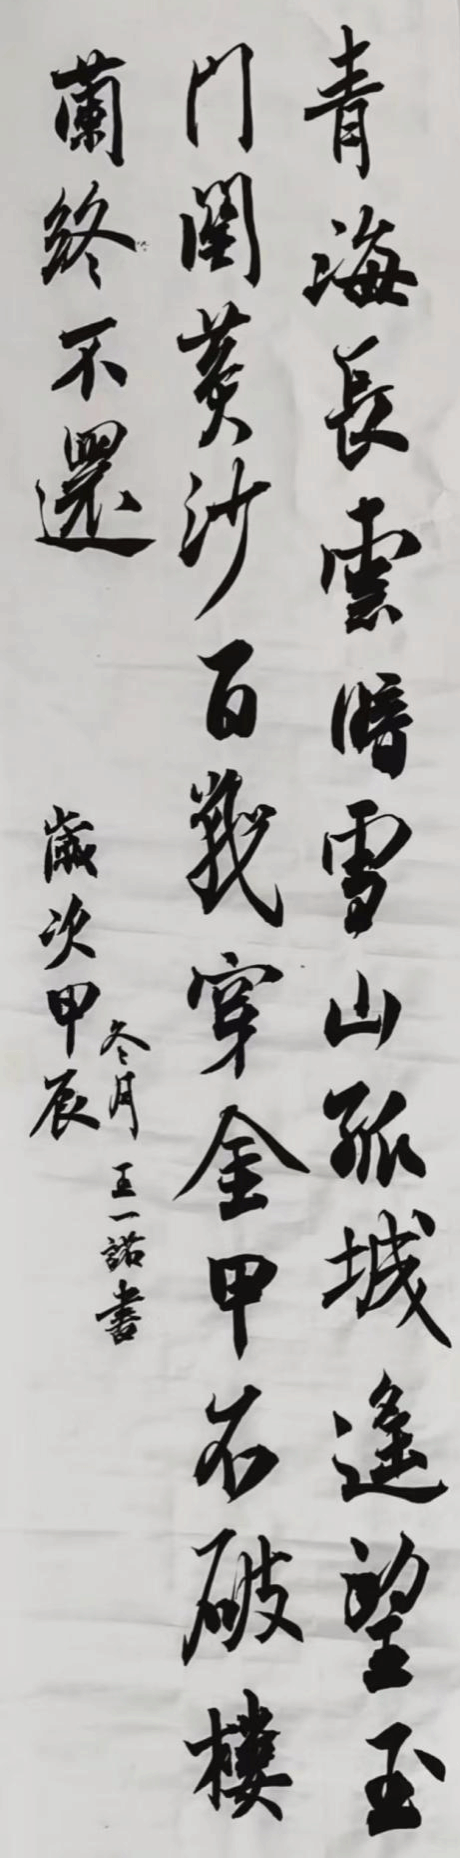 青海長雲暗雪山孤城遙望玉
門關黃沙百戰穿金甲不破樓
蘭終不還
歲次甲辰
冬月王一諾書